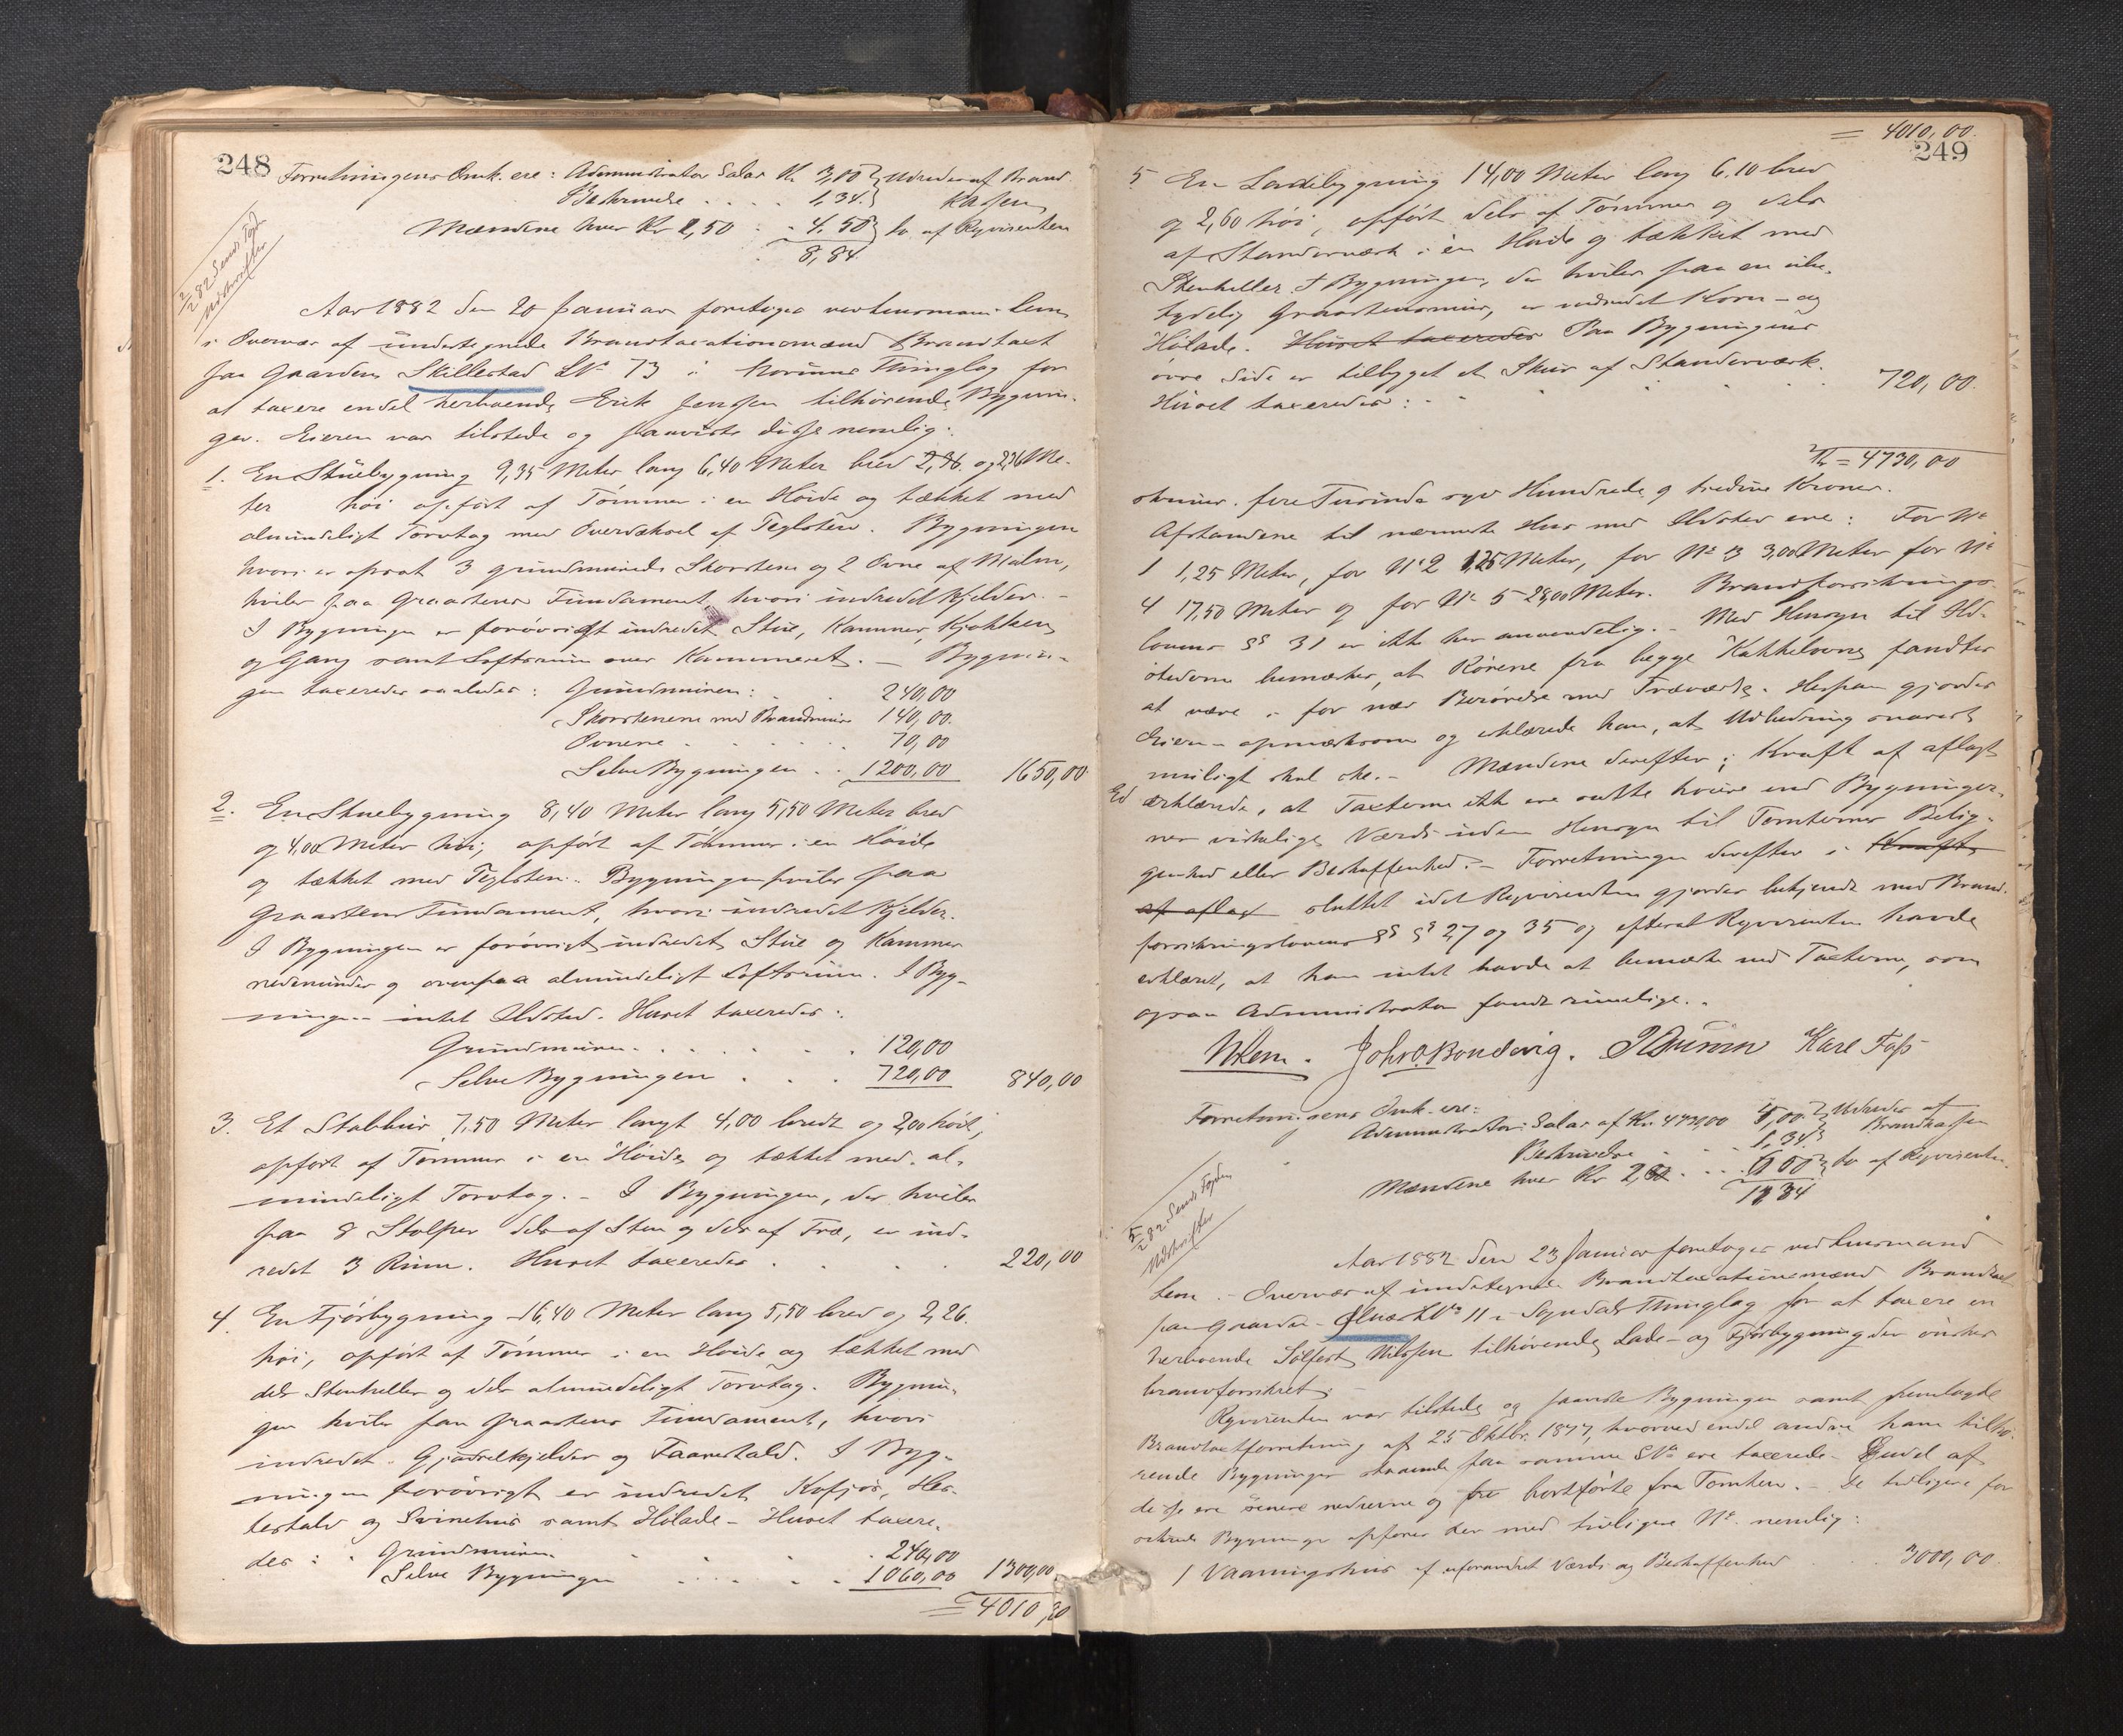 248
Forretningens Omk. ere: Administrator Salar Kr 3,00 } Udredes af Brand
Beskrivelse . . . . 1,34. } Kassen
Mændene hver Kr 1,50 . . 4.50 } do af Rqvirenten
8,84
2/2 82 Sendt Fogd
Udskrifter
Aar 1882 den 20 Januar foretoges ved Lensmand Lem
i Overvær af undertegnede Brandtaxationsmænd Brandtaxt
paa Gaarden Skillestad LN 73 i Norums Thinglag for
at taxere endel herboende Erik Jenssen tilhørende Bygnin-
ger. Eieren var tilstede og paaviste disse nemlig:
1. En Stuebygning 9,35 Meter lang 6,40 Meter bred 2,36. og 2,26 Me-
ter høi opført af Tømmer i en Høide og tækket med
almindeligt Torvtag med Overdæksel af Teglsten. Bygningen
hvori er opsat 3 grundmurede Skorstene og 2 Ovne af Malm,
hviler paa Graastens Fundament hvori indredet Kjelder. -
I Bygningen er forøvrigt indredet Stue, Kammer, Kjøkken
og Gang samt Loftsrum over Kammeret. - Bygnin-
gen taxeredes saaledes: Grundmuren: . . 240,00
Skorstenene med Brandmure 140,00.
Ovnene . . . . . . 70,00
Selve Bygningen . . 1200,00 1650,00
2. En Stuebygning 8,40 Meter lang 5,50 Meter bred
og 4,00 Meter høi, opført af Tømmer i en Høide
og tækket med Teglsten. Bygningen hviler paa
Graastens Fundament, hvori indredet Kjelder.
I Bygningen er forøvrigt indredet Stue og Kammer
nedenunder og ovenpaa almindeligt Loftsrum. I Byg-
ningen intet Ildsted. Huset taxeredes:
Grundmuren . . . . . . 120,00
Selve Bygningen . . . 720,00 840,00
3. Et Stabbur 7,50 Meter langt 4,00 bredt og 2,00 høit,
opført af Tømmer i en Høide og tækket med al-
mindeligt Torvtag. - I Bygningen, der hviler
paa 8 Stolper dels af Sten og dels af Træ, er ind-
redet 3 Rum. Huset taxeredes . . . . 220,00
4. En Fjøsbygning 16,40 Meter lang 5,50 bred og 2,26.
høi, opført af Tømmer i en Høide og tækket med
dels Stenheller og dels almindeligt Torvtag. Bygnin-
gen hviler paa Graastens Fundament, hvori
indredet Gjødselkjelder og Faarestald. I Byg-
ningen forøvrigt er indredet Kofjøs, Hes-
testald og Svinehus samt Hølade - Huset taxere-
des: . Grundmuren . . . . 240,00
Selve Bygningen . . . . . 1060,00 1300,00
= 4010,00
= 4010,00.
249
5 En Ladebygning 14,00 Meter lang 6.10 bred
og 2,60 høi, opført dels af Tømmer og dels
af Standerværk i en Høide og tækket med
Stenheller. I Bygningen, der hviler paa en ube-
tydelig Graastensmur, er indredet Korn- og
Hølade. Huset taxeredes Paa Bygningens
øvre Side er tilbygget et Skur af Standerværk.
Huset taxeredes: . . . . . . 720,00.
Kr = 4730,00
skriver fire Tusinde syv Hundrede og tredive Kroner.
Afstandene til nærmeste Hus med Ildsted ere: For No
1 1,25 Meter, for No 2 1,25 Meter, for No 3 3,00 Meter for No
4 17,50 Meter og for No 5 29,00 Meter. Brandforsikrings-
lovens §§ 31 er ikke her anvendelig. - Med Hensyn til Ild-
stederne bemærkes, at Rørene fra begge Kakkelovne fandtes
at være i for nær Berørelse med Træværk. Herpaa gjordes
Eieren opmærksom og erklærede han, at Udbedring snarest
muligt skal ske. - Mændene derefter i Kraft af aflagt
Ed erklærede, at Taxterne ikke ere satte høiere end Bygninger-
nes virkelige Værdi uden Hensyn til Tomternes Belig-
genhed eller Beskaffenhed. - Forretningen derefter i Kraft
af aflagt sluttet idet Rqvirenten gjordes bekjendt med Brand-
forsikringslovens §§ 27 og 35 og efterat Rqvirenten havde
erklæret, at han intet havde at bemærke ved Taxterne, som
ogsaa Administrator fandt rimelige. -
WLem. Johs. O. Bondevig. Karl Foss
Forretningens Omk. ere:
Administrator: Salar af Kr. 4730,00 5,00 } Udredes af
Beskrivelse . . . 1,34 } Brandkassen
Mændene hver Kr 2,00 . . . 6 00 } do af Rqvirenten
12 34
5/2 82 Sendt Fogden
Udskrifter
Aar 1882 den 23 Januar foretoges ved Lensmand
Lem i Overvær af undertegnede Brandtaxationsmænd Brandtaxt
paa Gaarden LNo 11 i Sogndals Thinglag for at taxere en
herboende Sølfest Nilssen tilhørende Lade- og Fjøsbygning der ønskes
brandforsikret.
Rqvirenten var tilstede og paaviste Bygningen samt fremlagde
Brandtaxtforretning af 25 Oktbr. 1877, hvorved endel andre ham tilhø-
rende Bygninger staaende paa samme LNo ere taxerede. Endel af
disse ere senere nedrevne og fra bortførte fra Tomten. - De tidligere for
sikrede Bygninger opføres der med tidligere No. nemlig:
1 Vaaningshus af uforandret Værdi og Beskaffenhed . . . 3000,00.